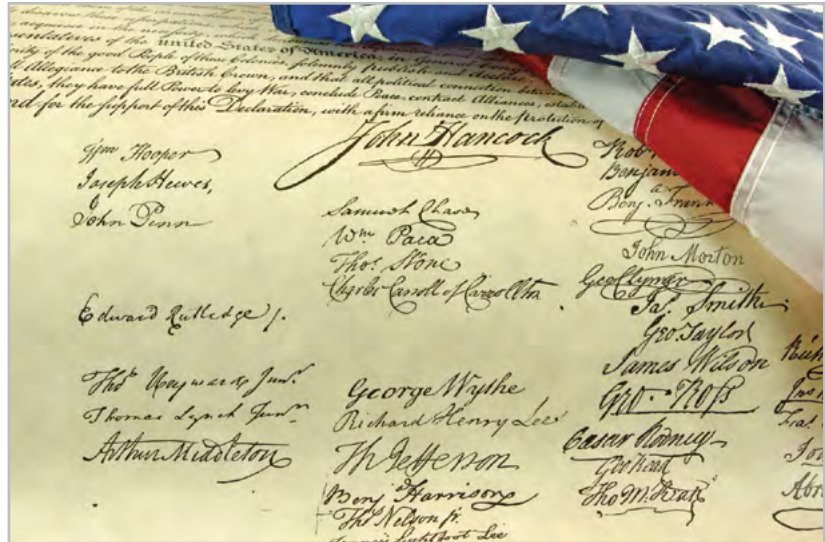 disavow these usurpations,
acquiesce in the necessity, which
Representatives of the united States of America, in General Congress
of the good People of these Colonies, solemnly publish and declare
Allegiance to the British Crown, and that all political connection between
they have full Power to levy War, conclude Peace, contract Alliances,
for the support of this Declaration, with a firm reliance on the Protection of
John Hancock
Wm Hooper
Joseph Hewes,
John Penn
Edward Rutledge /.
Thos Heyward Junr.
Thomas Lynch Junr.
Arthur Middleton
Samuel Chase
Wm Paca
Thos Stone
Charles Carroll of Carrollton
George Wythe
Richard Henry Lee
Th Jefferson
Benj Harrison
Thos Nelson jr.
Francis Lightfoot Lee
Rob
Benjam
Benj. Frank
John Morton
Geo Clymer
Jas. Smith
Geo. Taylor
James Wilson
Geo. Ross
Caesar Rodney
Geo Read
Tho M:Kean